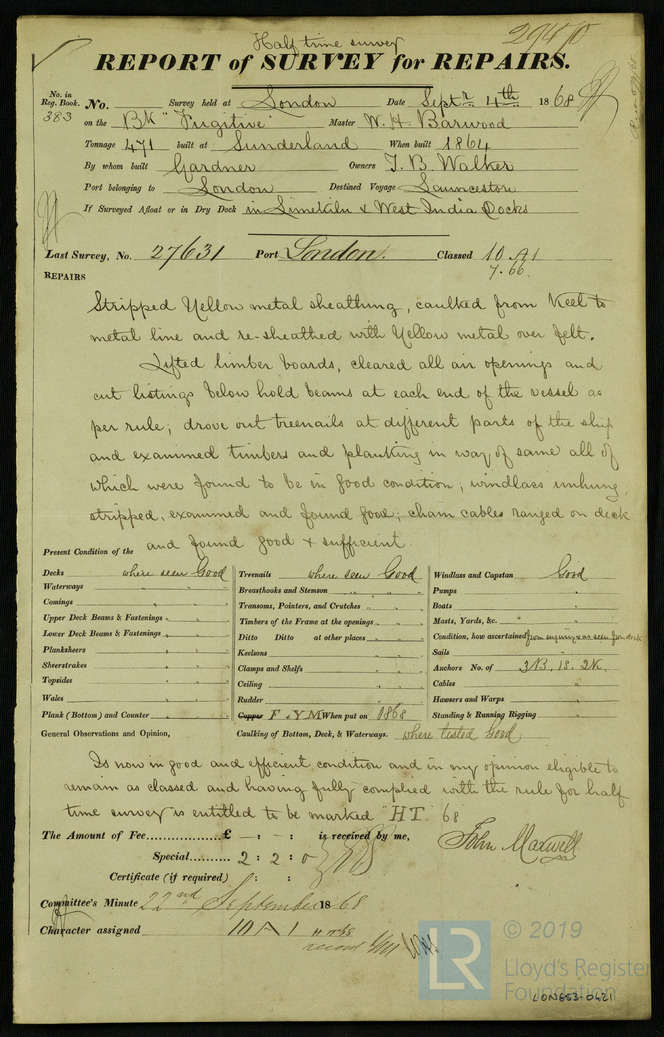 Half time survey
29470
REPORT of SURVEY for REPAIRS.
No. in Reg. Book. No. Survey held at London Date Septr 4th 1868
383 on the Bk "Fugitive" Master W. H. Barwood
Tonnage 471 built at Sunderland When built 1864
By whom built Gardner Owners T. B. Walker
Port belonging to London Destined Voyage Launceston
If Surveyed Afloat or in Dry Dock in Limekiln & West India Docks
Last Survey, No. 27631 Port London. Classed 10 A1
7.66.
REPAIRS
Stripped Yellow metal sheathing, caulked from Keel to
metal line and re-sheathed with Yellow metal over felt.
Lifted limber boards, cleared all air openings and
cut listings below hold beams at each end of the vessel as
per rule; drove out treenails at different parts of the ship
and examined timbers and planking in way of same all of
which were found to be in good condition; windlass unhung,
stripped, examined and found good; chain cables ranged on deck
and found good & sufficient
Present Condition of the
Decks where seen Good Treenails where seen Good Windlass and Capstan Good
Waterways Breasthooks and Stemson " " " Pumps "
Comings Transoms, Pointers, and Crutches " " " Boats "
Upper Deck Beams & Fastenings " " " Timbers of the Frame at the openings " " " Masts, Yards, &c. "
Lower Deck Beams & Fastenings " " " Ditto Ditto at other places " " " Condition, how ascertained from enquiry & as seen from deck
Planksheers " " " Keelsons " " " Sails "
Sheerstrakes " " " Clamps and Shelfs " " " Anchors No. of 3B. 1S. 2K.
Topsides " " " Ceiling " " " Cables "
Wales " " " Rudder " " " Hawsers and Warps "
Plank (Bottom) and Counter " " " Copper F. YM When put on 1868 Standing & Running Rigging "
General Observations and Opinion, Caulking of Bottom, Deck, & Waterways. where tested Good
Is now in good and efficient condition and in my opinion eligible to
remain as classed and having fully complied with the rule for half
time survey is entitled to be marked "HT 68
The Amount of Fee £ — : - : is received by me,
John Maxwell
Special 2 : 2 : 0
Certificate (if required) : :
Committee's Minute 22nd September 1868
Character assigned 10 A 1 HT 68
© 2019
LR Lloyd's Register
Foundation
LON653-0421